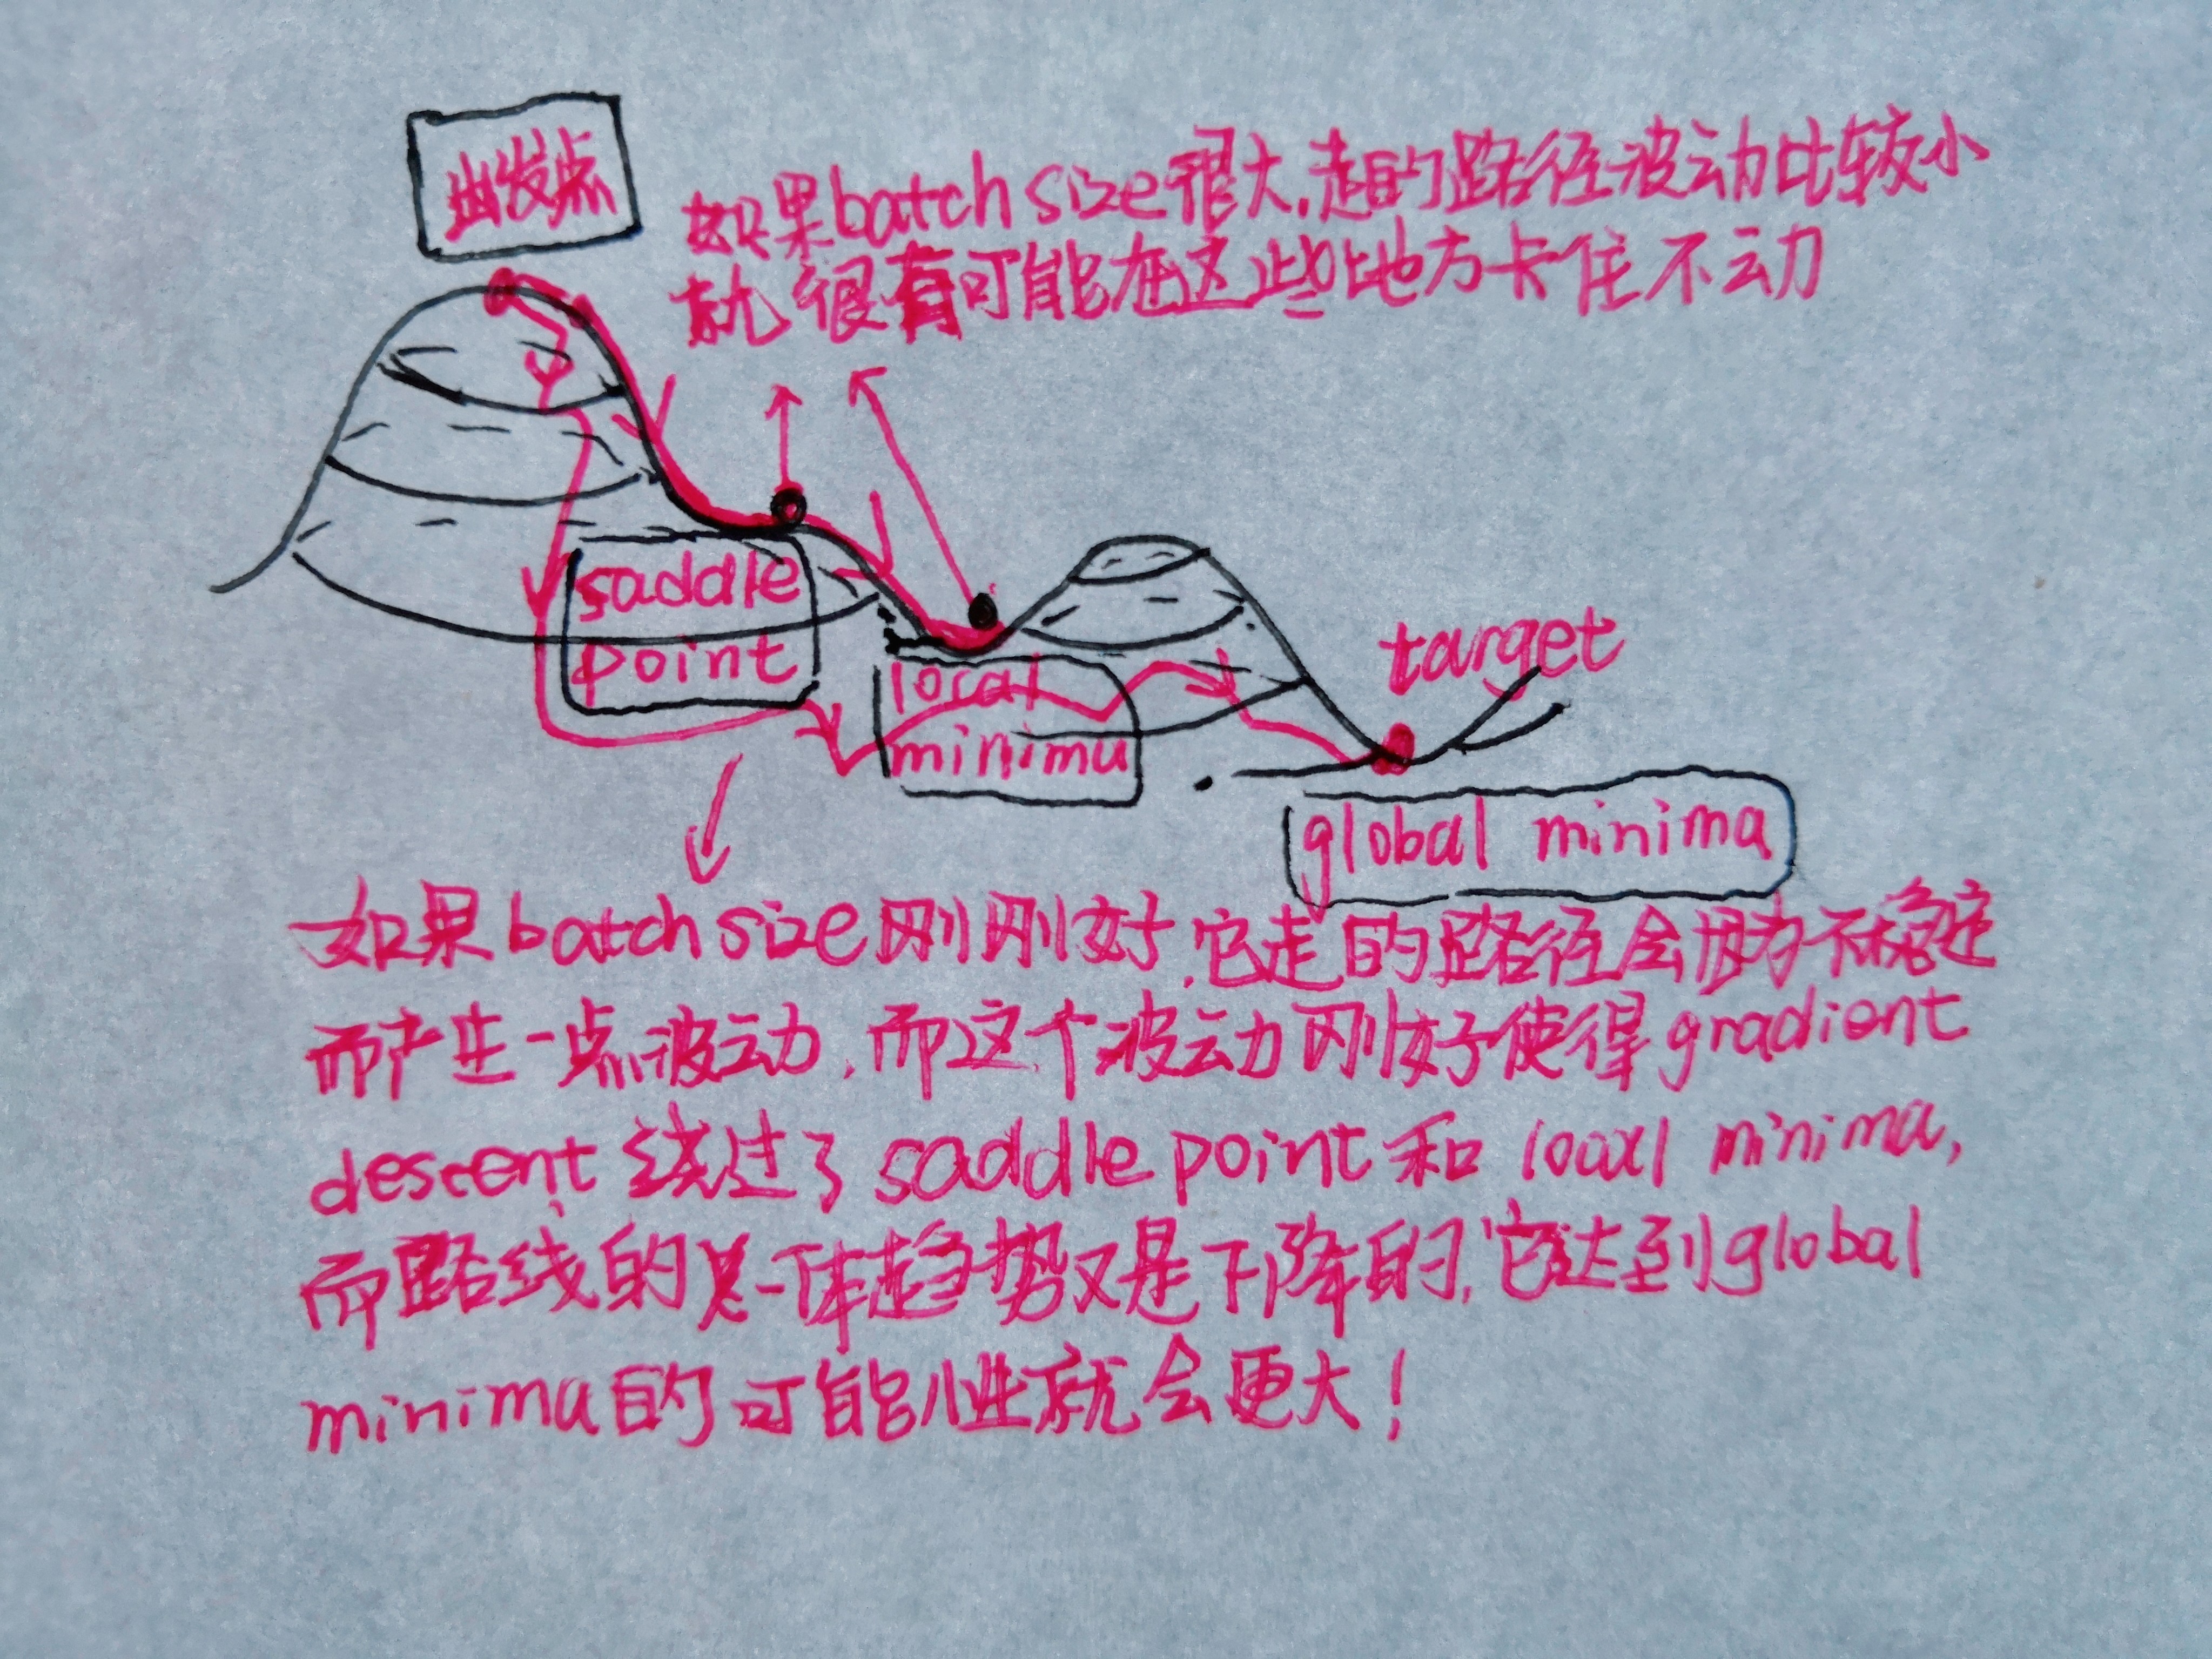 出发点
如果batch size很大,走的路径波动比较小
就很有可能在这些地方卡住不动
saddle
point
local
minimu
target
global minima
如果batch size刚刚好,它走的路径会因为不稳定
而产生一点波动,而这个波动刚好使得gradient
descent绕过了saddle point和local minima,
而路线的总体趋势又是下降的,它达到global
minima的可能性就会更大!